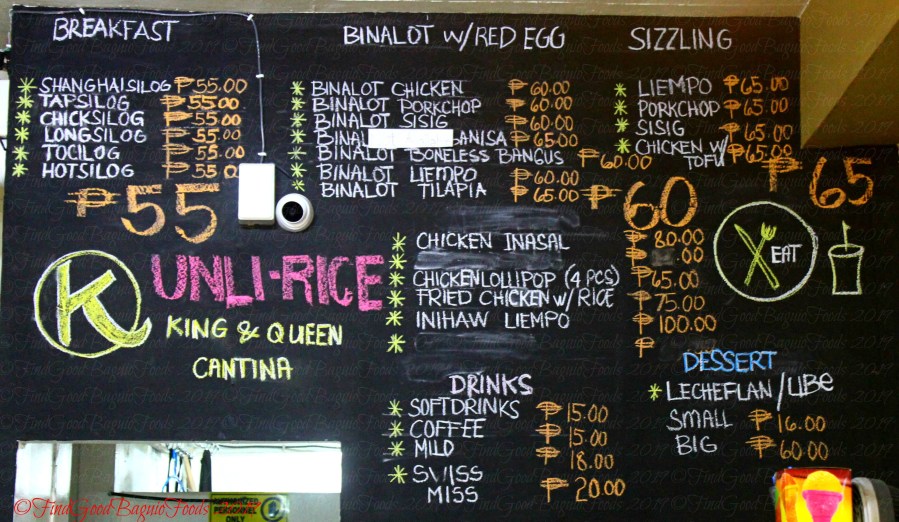 BREAKFAST
* SHANGHAISILOG ₱55.00
* TAPSILOG ₱55.00
* CHICKSILOG ₱55.00
* LONGSILOG ₱55.00
* TOCILOG ₱55.00
* HOTSILOG ₱55.00
₱55
BINALOT W/RED EGG
* BINALOT CHICKEN ₱60.00
* BINALOT PORKCHOP ₱60.00
* BINALOT SISIG ₱60.00
* ₱65.00
* BINALOT BONELESS BANGUS ₱60.00
* BINALOT LIEMPO ₱60.00
* BINALOT TILAPIA ₱65.00
₱60
SIZZLING
* LIEMPO ₱65.00
* PORKCHOP ₱65.00
* SISIG ₱65.00
* CHICKEN W/ TOFU ₱65.00
₱65
K
UNLI-RICE
KING & QUEEN
CANTINA
* CHICKEN INASAL ₱80.00
* ₱ .00
* CHICKENLOLLIPOP (4 PCS) ₱65.00
* FRIED CHICKEN W/ RICE ₱75.00
* INIHAW LIEMPO ₱100.00
* ₱
EAT
DRINKS
* SOFTDRINKS ₱15.00
* COFFEE ₱15.00
* MILO ₱18.00
* SWISS
MISS ₱20.00
DESSERT
* LECHEFLAN/UBE
SMALL ₱16.00
BIG ₱60.00
PERSONNEL
ONLY
©FindGoodBaguioFoods